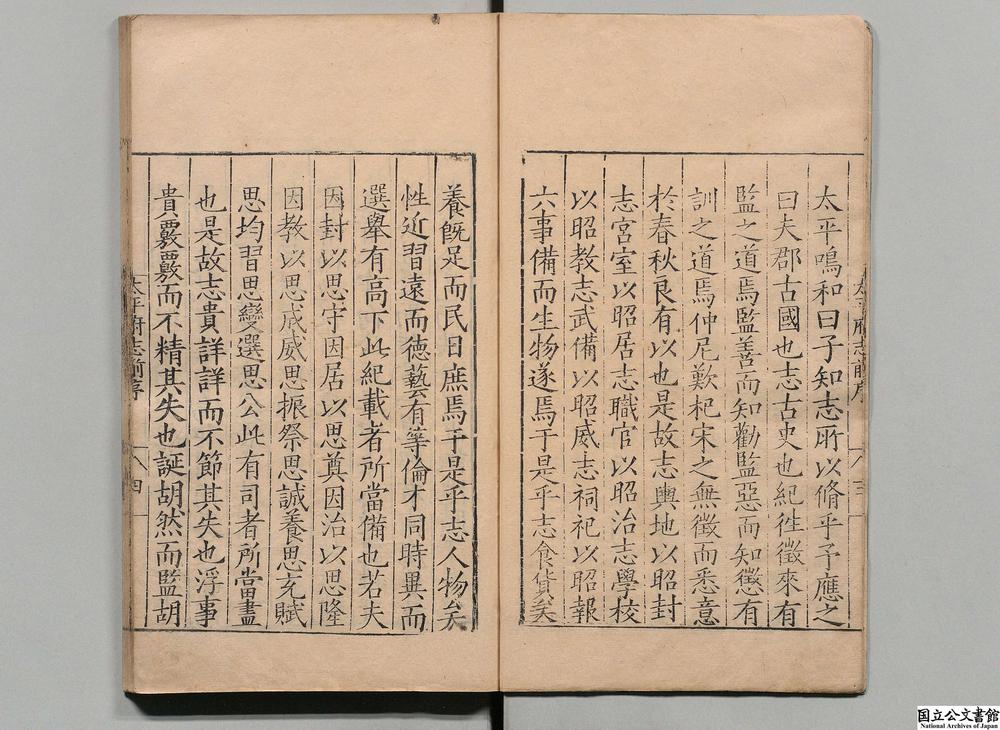 太平鳴和曰子知志所以脩乎予應之
曰夫郡古國也志古史也紀徃徵來有
監之道焉監善而知勸監惡而知懲有
訓之道焉仲尼歎杞宋之無徵而悉意
於春秋良有以也是故志輿地以昭封
志宮室以昭居志職官以昭治志學校
以昭教志武備以昭威志祠祀以昭報
六事備而生物遂焉于是乎志食貨矣
養旣足而民日庶焉于是乎志人物矣
性近習遠而德藝有等倫才同時異而
選舉有高下此紀載者所當備也若夫
因封以思守因居以思奠因治以思隆
因教以思成威思振祭思誠養思充賦
思均習思變選思公此有司者所當盡
也是故志貴詳詳而不節其失也浮事
貴覈覈而不精其失也誕胡然而監胡
太平府志前序
三
太平府志前序
四
国立公文書館
National Archives of Japan